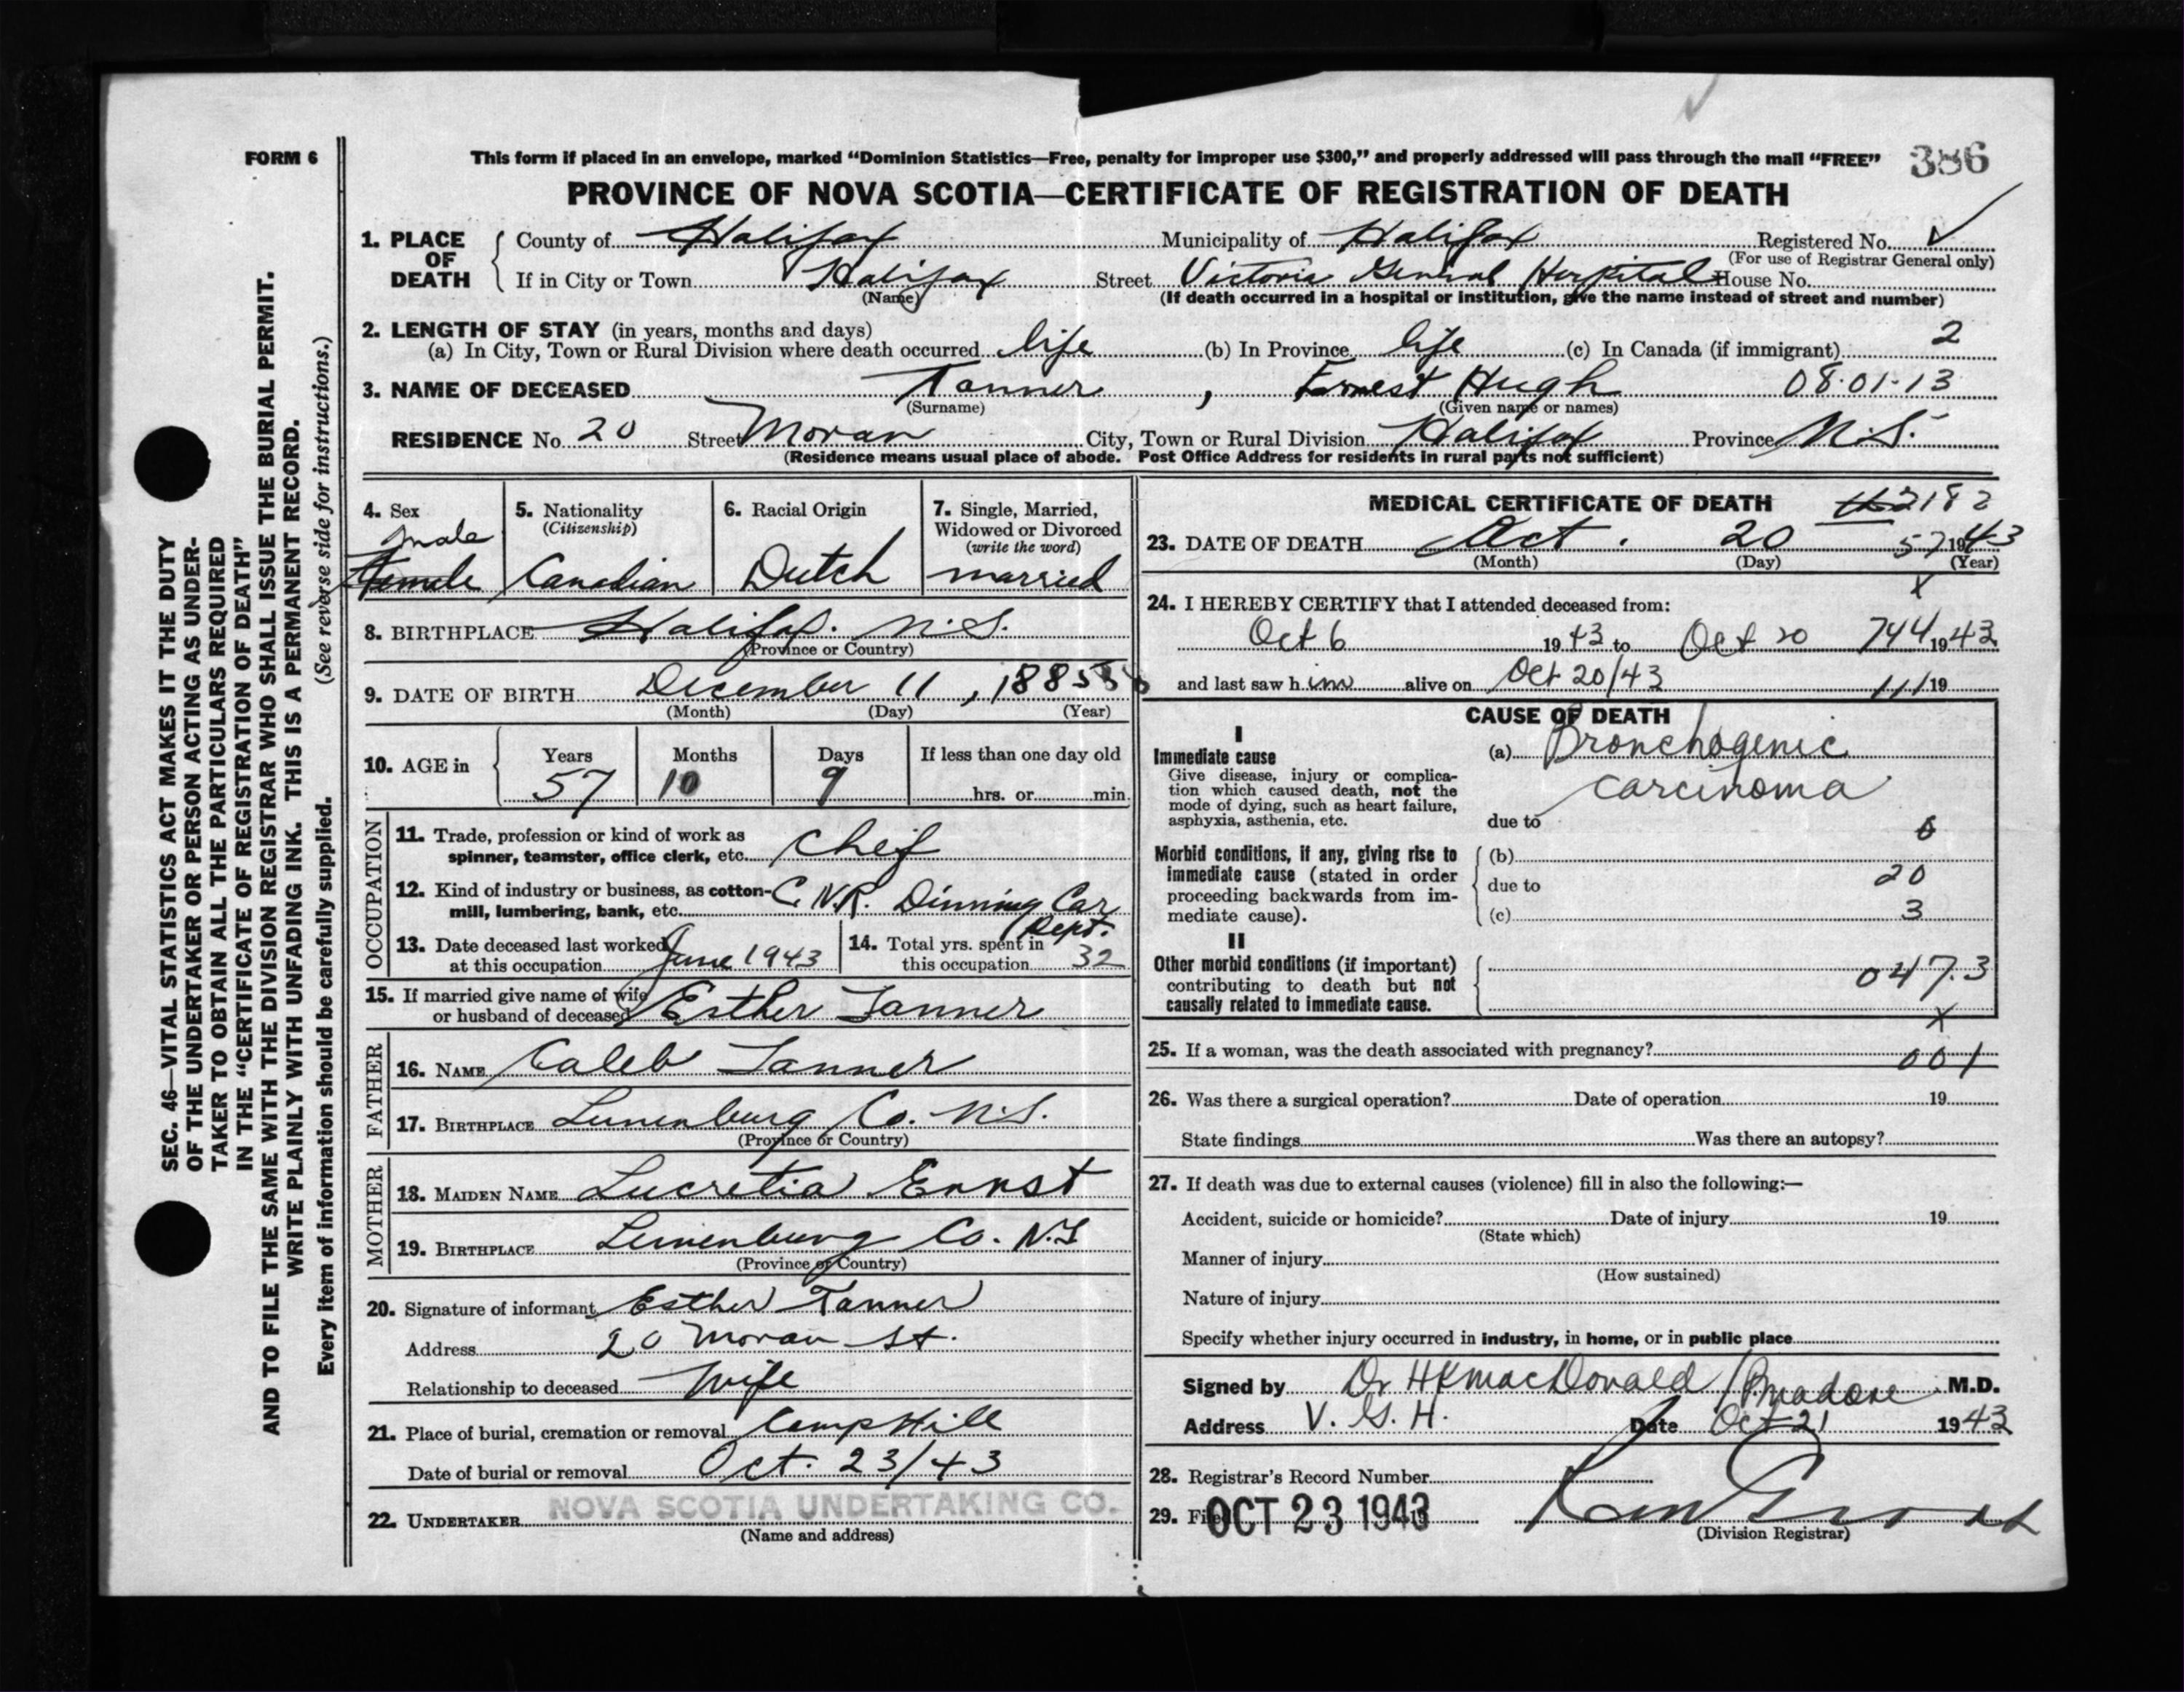 FORM 6
This form if placed in an envelope, marked “Dominion Statistics—Free, penalty for improper use $300,” and properly addressed will pass through the mail “FREE”
386
PROVINCE OF NOVA SCOTIA—CERTIFICATE OF REGISTRATION OF DEATH
SEC. 46—VITAL STATISTICS ACT MAKES IT THE DUTY
OF THE UNDERTAKER OR PERSON ACTING AS UNDER-
TAKER TO OBTAIN ALL THE PARTICULARS REQUIRED
IN THE “CERTIFICATE OF REGISTRATION OF DEATH”
AND TO FILE THE SAME WITH THE DIVISION REGISTRAR WHO SHALL ISSUE THE BURIAL PERMIT.
WRITE PLAINLY WITH UNFADING INK. THIS IS A PERMANENT RECORD.
Every item of information should be carefully supplied. (See reverse side for instructions.)
1. PLACE OF DEATH
County of Halifax Municipality of Halifax Registered No.
(For use of Registrar General only)
If in City or Town Halifax Street Victoria General Hospital House No.
(Name) (If death occurred in a hospital or institution, give the name instead of street and number)
2. LENGTH OF STAY (in years, months and days) 2
(a) In City, Town or Rural Division where death occurred life (b) In Province life (c) In Canada (if immigrant)
3. NAME OF DECEASED Tanner, Ernest Hugh 08·01·13
(Surname) (Given name or names)
RESIDENCE No. 20 Street Moran City, Town or Rural Division Halifax Province N.S.
(Residence means usual place of abode. Post Office Address for residents in rural parts not sufficient)
4. Sex
male
Female
5. Nationality
(Citizenship)
Canadian
6. Racial Origin
Dutch
7. Single, Married,
Widowed or Divorced
(write the word)
married
8. BIRTHPLACE Halifax. N.S.
(Province or Country)
9. DATE OF BIRTH December 11, 1885
(Month) (Day) (Year)
10. AGE in
Years Months Days If less than one day old
57 10 9 hrs. or min.
OCCUPATION
11. Trade, profession or kind of work as
spinner, teamster, office clerk, etc. Chef
12. Kind of industry or business, as cotton-
mill, lumbering, bank, etc. C.N.R. Dinning Car
Dept.
13. Date deceased last worked
at this occupation June 1943
14. Total yrs. spent in
this occupation 32
15. If married give name of wife
or husband of deceased Esther Tanner
FATHER
16. NAME Caleb Tanner
17. BIRTHPLACE Lunenburg Co. N.S.
(Province or Country)
MOTHER
18. MAIDEN NAME Lucretia Ernst
19. BIRTHPLACE Lunenburg Co. N.S
(Province or Country)
20. Signature of informant Esther Tanner
Address 20 Moran St.
Relationship to deceased Wife
21. Place of burial, cremation or removal Camp Hill
Date of burial or removal Oct. 23/43
22. UNDERTAKER NOVA SCOTIA UNDERTAKING CO.
(Name and address)
MEDICAL CERTIFICATE OF DEATH 2182
23. DATE OF DEATH Oct. 20 57 1943
(Month) (Day) (Year)
x
24. I HEREBY CERTIFY that I attended deceased from:
Oct 6 1943 to Oct 20 744 1943
and last saw him alive on Oct 20/43 111 19
CAUSE OF DEATH
I
Immediate cause
Give disease, injury or complica-
tion which caused death, not the
mode of dying, such as heart failure,
asphyxia, asthenia, etc.
(a) Bronchogenic
carcinoma
due to 6
Morbid conditions, if any, giving rise to
immediate cause (stated in order
proceeding backwards from im-
mediate cause).
(b)
due to 20
(c) 3
II
Other morbid conditions (if important)
contributing to death but not
causally related to immediate cause.
047.3
x
25. If a woman, was the death associated with pregnancy? 001
26. Was there a surgical operation? Date of operation 19
State findings Was there an autopsy?
27. If death was due to external causes (violence) fill in also the following:—
Accident, suicide or homicide? Date of injury 19
(State which)
Manner of injury
(How sustained)
Nature of injury
Specify whether injury occurred in industry, in home, or in public place
Signed by Dr HK MacDonald M.D.
Address V. G. H. Date Oct 21 1943
28. Registrar's Record Number
29. Filed OCT 23 1943
(Division Registrar)